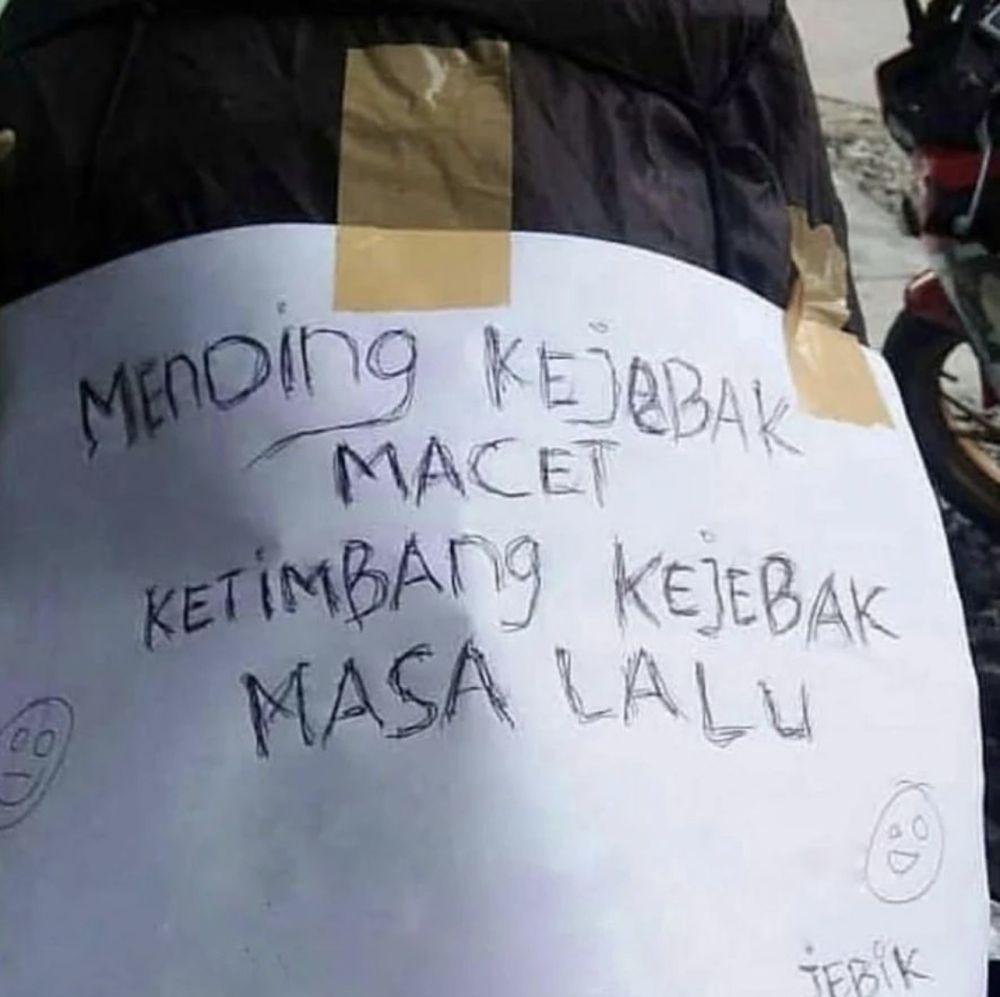 MENDing KEJEBAK
MACET
KETiMBAng KEJEBAK
MASA LALU
JEBIK